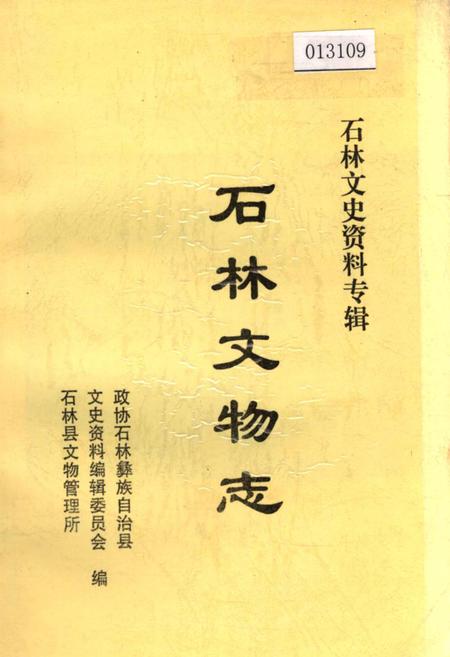 013109
石林文史资料专辑
石林文物志
政协石林彝族自治县
文史资料编辑委员会 编
石林县文物管理所